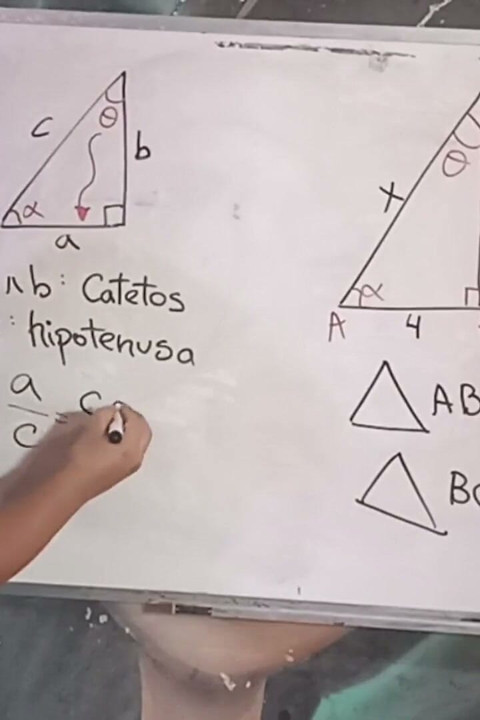 c
θ
b
α
a
∧ b : Catetos
: hipotenusa
a
c
= c
θ
x
α
A
4
△ AB
△ B